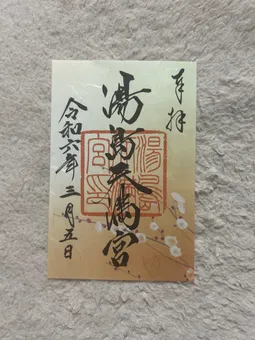 奉拝
湯島天満宮
令和六年三月五日